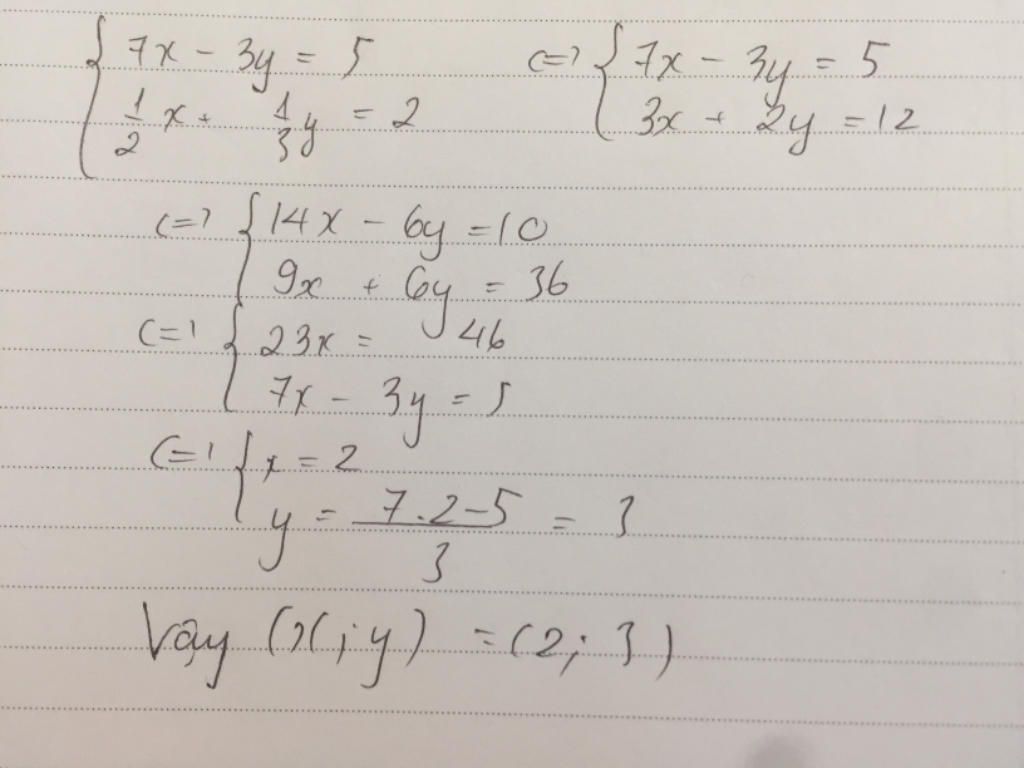 { 7x - 3y = 5 <=> { 7x - 3y = 5
1/2 x + 1/3 y = 2 3x + 2y = 12
<=> { 14x - 6y = 10
9x + 6y = 36
<=> { 23x = 46
7x - 3y = 5
<=> { x = 2
y = (7.2-5)/3 = 3
Vậy (x;y) = (2;3)